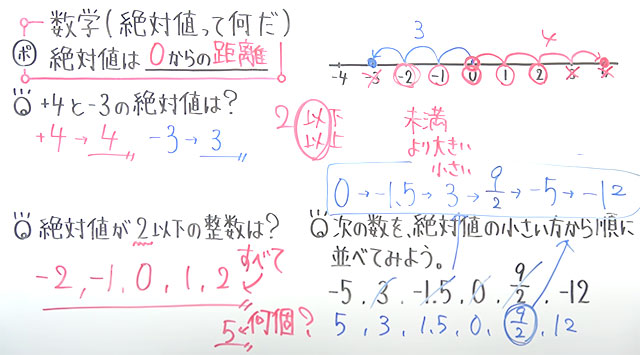 数学(絶対値って何だ)
ポ 絶対値は 0からの距離
3
4
-4 -3 -2 -1 0 1 2 3
+4と-3の絶対値は?
+4→4 -3→3
2 以下
以上
未満
より大きい
小さい
0→-1.5→3→9/2→-5→-12
絶対値が2以下の整数は?
-2,-1,0,1,2
すべて
5←何個?
次の数を、絶対値の小さい方から順に
並べてみよう。
-5, 3, -1.5, 0, 9/2, -12
5, 3, 1.5, 0, 9/2, 12